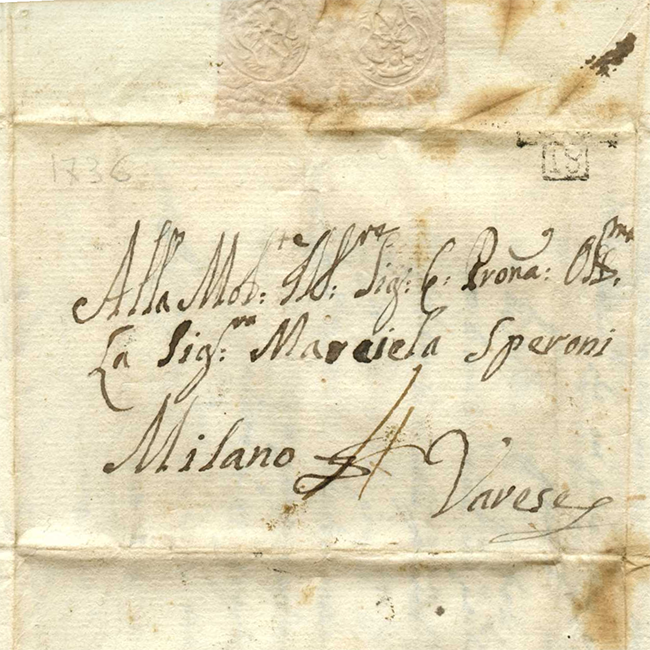 1736
19
Alla Mol:te Ill:re Sig: e: Proña: Oss.ma
La Sig:ra Marciela Speroni
Milano
Varese